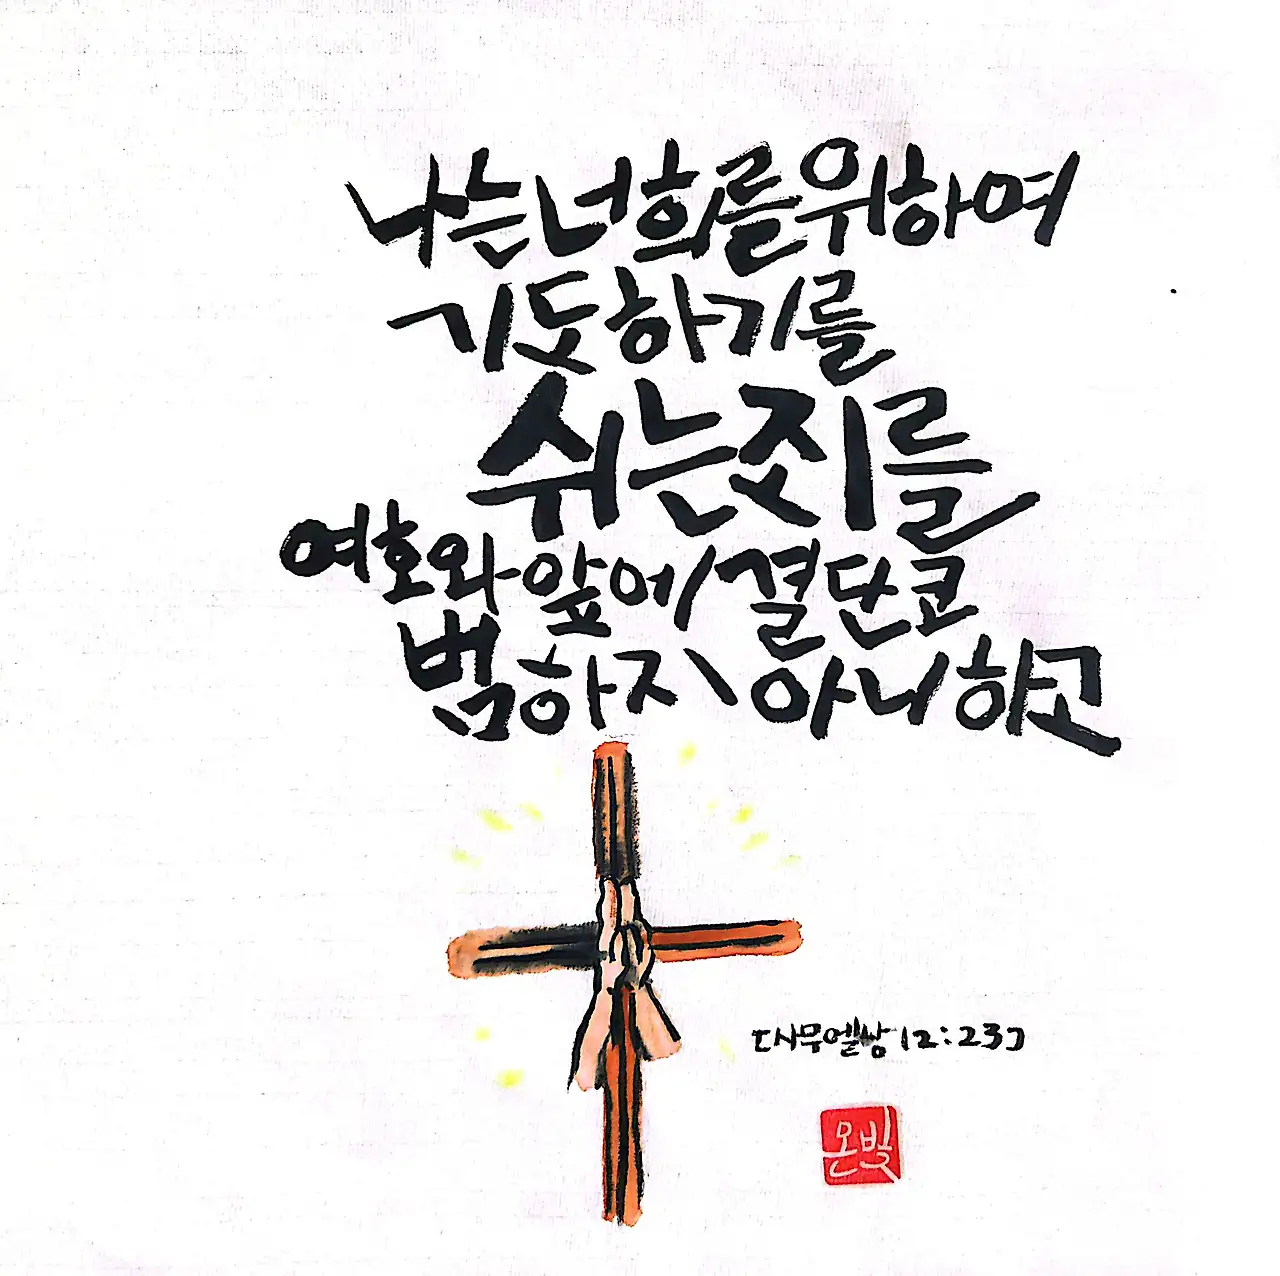 나는 너희를 위하여
기도하기를
쉬는 죄를
여호와 앞에 결단코
범하지 아니하고
[사무엘상 12:23]
온빛